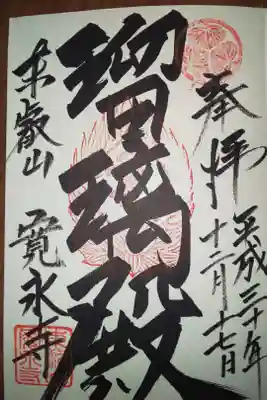 奉拝
平成三十年
十二月十七日
瑠璃殿
東叡山
寛永寺